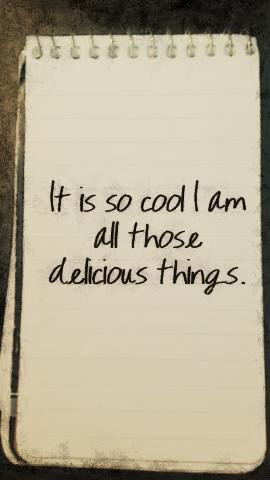 It is so cool I am
all those
delicious things.